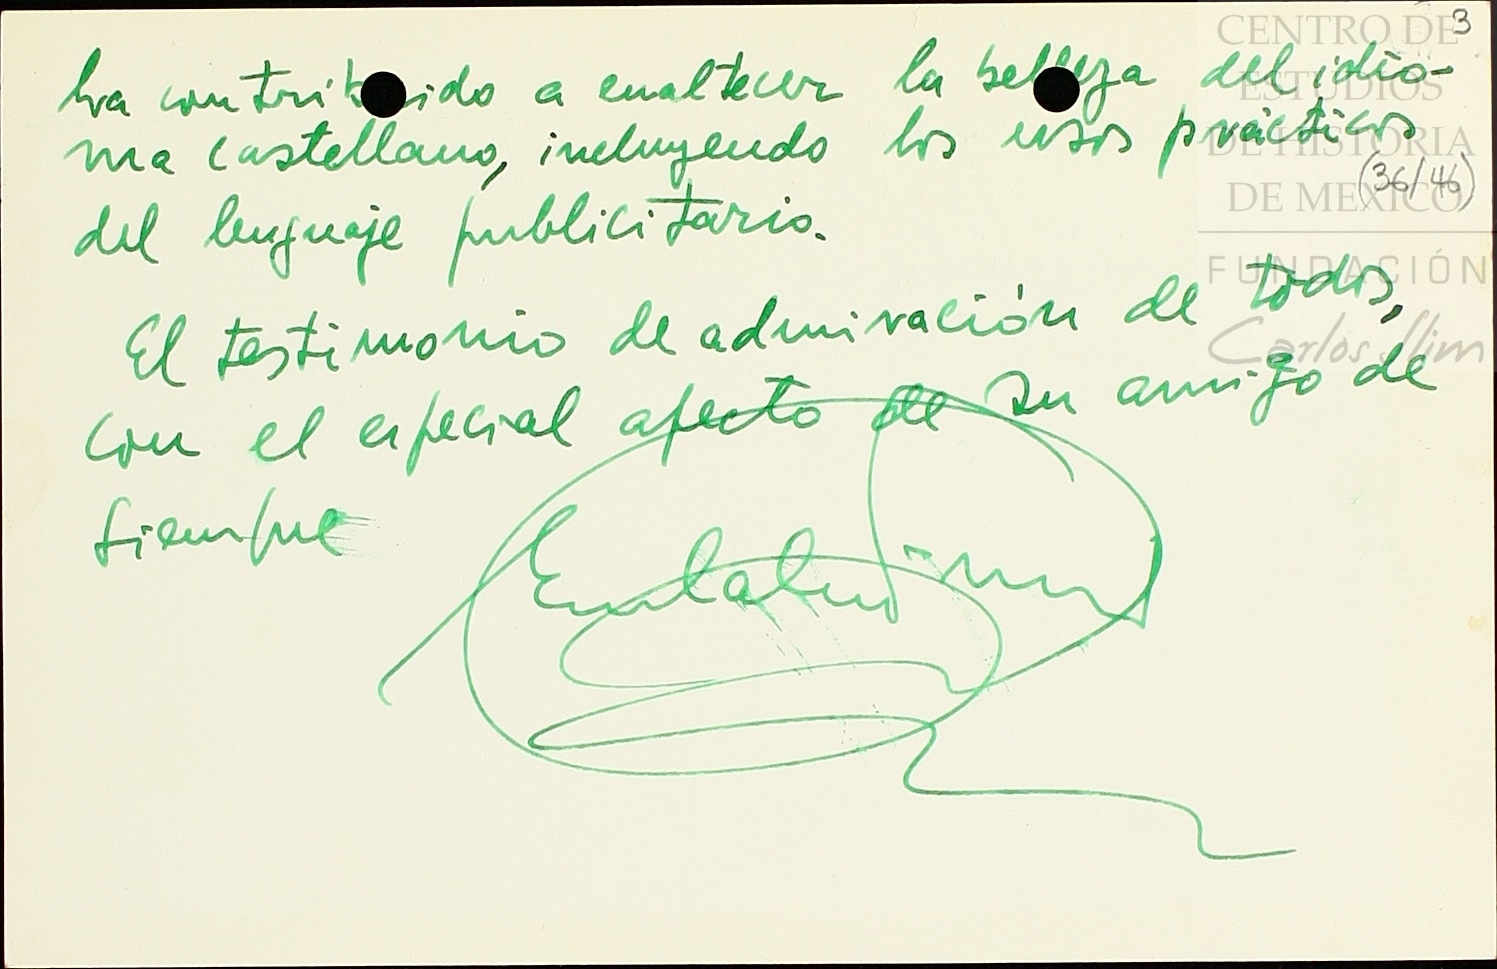 3
ha contribuido a enaltecer la belleza del idio-
ma castellano, incluyendo los usos prácticos
(36/46)
del lenguaje publicitario.
El testimonio de admiración de todos,
con el especial afecto de su amigo de
siempre
Eulalio
CENTRO DE
ESTUDIOS
DE HISTORIA
DE MEXICO
FUNDACIÓN
Carlos Slim